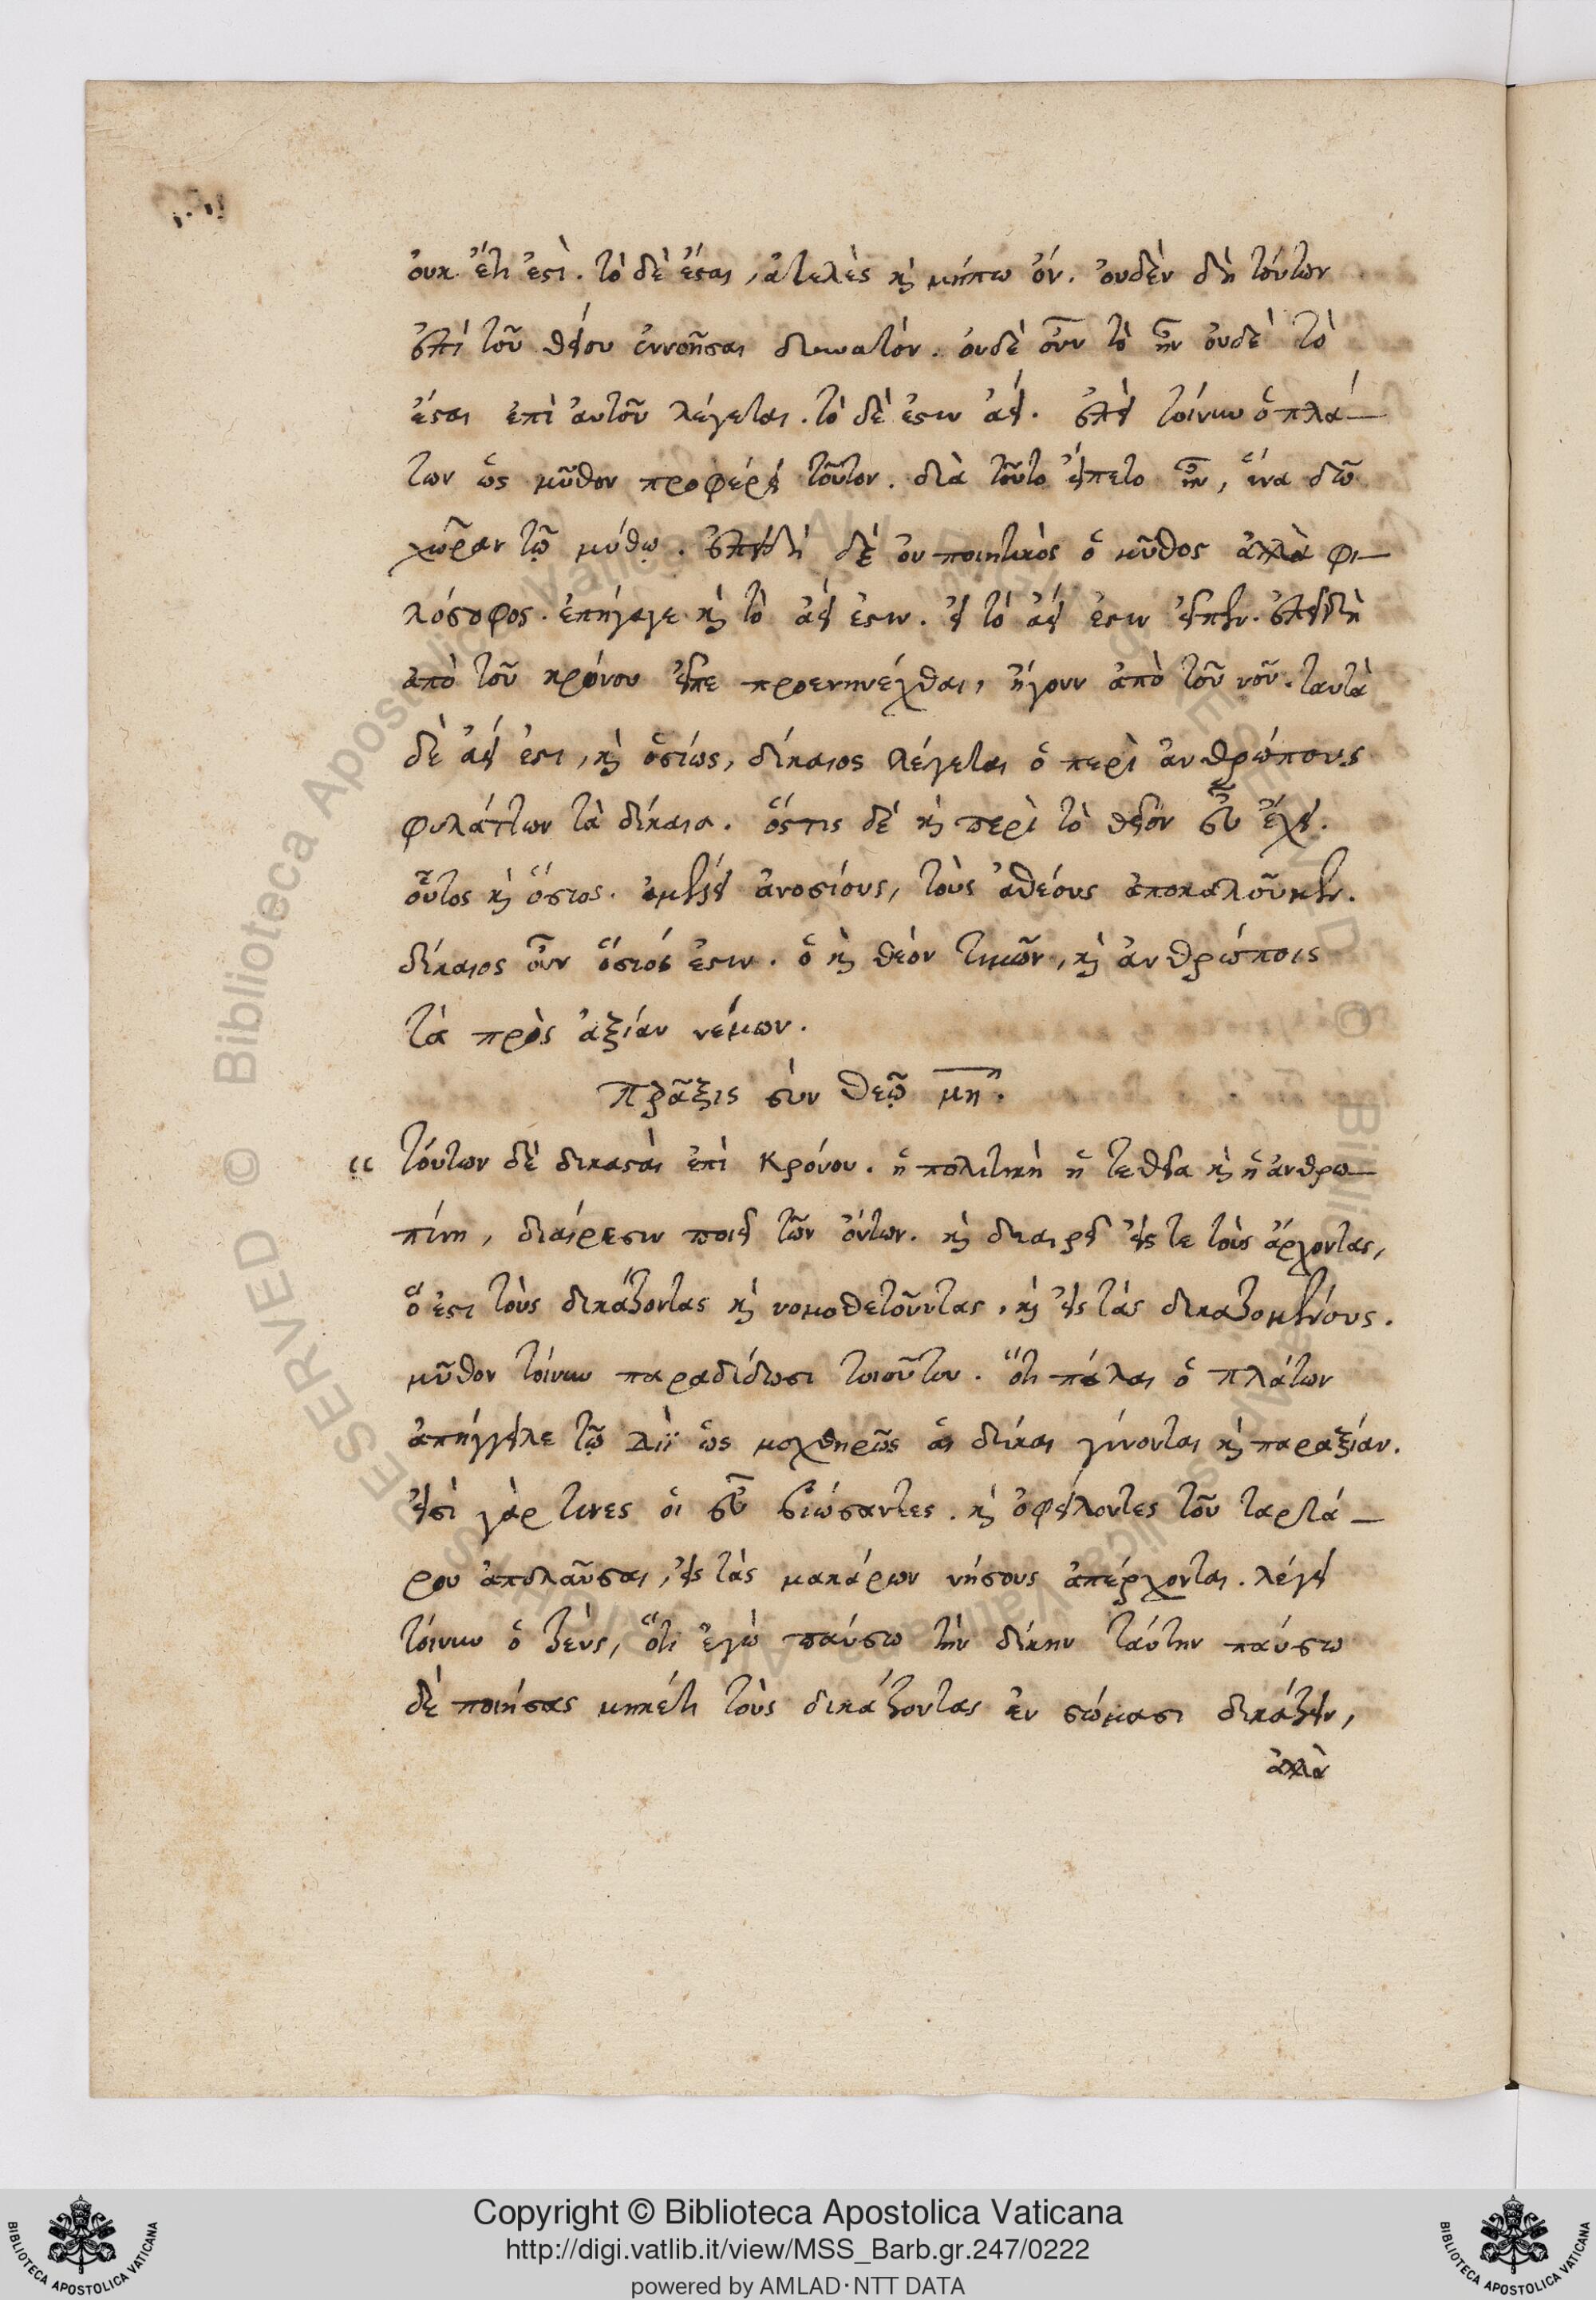 οὐκ ἔτι ἐστὶ. τὸ δὲ ἔσται, ἀτελὲς καὶ μήπω ὄν. οὐδὲν δὴ τούτων
ἐπὶ τοῦ θείου ἐννοῆσαι δυνατόν. οὐδὲ οὖν τὸ ἦν οὐδὲ τὸ
ἔσται ἐπὶ αὐτοῦ λέγεται. τὸ δὲ ἔστιν ἀεί. ἐπεὶ τοίνυν ὁ πλά–
των ὡς μῦθον προφέρει τοῦτον. διὰ τοῦτο εἴπετο ἦν, ἵνα δῶ
χῶραν τῷ μύθῳ. ἐπειδὴ δὲ οὐ ποιητικὸς ὁ μῦθος ἀλλὰ φι–
λόσοφος. ἐπήγαγε καὶ τὸ ἀεί ἐστιν. εἰ τὸ ἀεί ἐστιν εἶπεν. ἐπειδὴ
ἀπὸ τοῦ κρόνου εἶπε προενηνέχθαι, ἤγουν ἀπὸ τοῦ νοῦ. ταυτὰ
δὲ ἀεί ἐστι, καὶ ὁσίως, δίκαιος λέγεται ὁ περὶ ἀνθρώπους
φυλάττων τὰ δίκαια. ὅστις δὲ καὶ περὶ τὸ θεῖον εὖ ἔχει.
οὗτος καὶ ὅσιος. ἀνοσίους, τοὺς ἀθέους ἀποκαλοῦμεν.
δίκαιος οὖν ὅσιός ἐστιν. ὁ καὶ θεὸν τιμῶν, καὶ ἀνθρώποις
τὰ πρὸς ἀξίαν νέμων.
Πρᾶξις σὺν θεῷ μη.
“ Τούτων δὲ δικασταὶ ἐπὶ Κρόνου. ἡ πολιτικὴ ἥ τε θεία καὶ ἡ ἀνθρω–
πίνη, διαίρεσιν ποιεῖ τῶν ὄντων. καὶ διαιρεῖ εἴς τε τοὺς ἄρχοντας,
ὅ ἐστι τοὺς δικάζοντας καὶ νομοθετοῦντας, καὶ εἰς τὰς δικαζομένους.
μῦθον τοίνυν παραδίδωσι τοιοῦτον. ὅτι πάλαι ὁ πλάτων
ἀπήγγειλε τῷ Διῒ ὡς μοχθηρῶς αἱ δίκαι γίνονται καὶ παραξίαν.
εἰσὶ γὰρ τινες οἱ εὖ βιώσαντες. καὶ ὀφείλοντες τοῦ ταρτά–
ρου ἀπολαῦσαι, εἰς τὰς μακάρων νήσους ἀπέρχονται. λέγει
τοίνυν ὁ ζεὺς, ὅτι ἐγὼ παύσω τὴν δίκην ταύτην παύσω
δὲ ποιήσας μηκέτι τοὺς δικάζοντας ἐν σώμασι δικάζειν,
ἀλλὰ
Copyright © Biblioteca Apostolica Vaticana
http://digi.vatlib.it/view/MSS_Barb.gr.247/0222
powered by AMLAD·NTT DATA
BIBLIOTECA APOSTOLICA VATICANA
BIBLIOTECA APOSTOLICA VATICANA